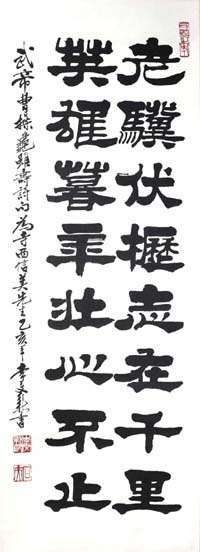 老驥伏櫪志在千里
英雄暮年壯心不止
武帝曹操龜雖壽詩句為寺西信美先生乙亥年李文彩書